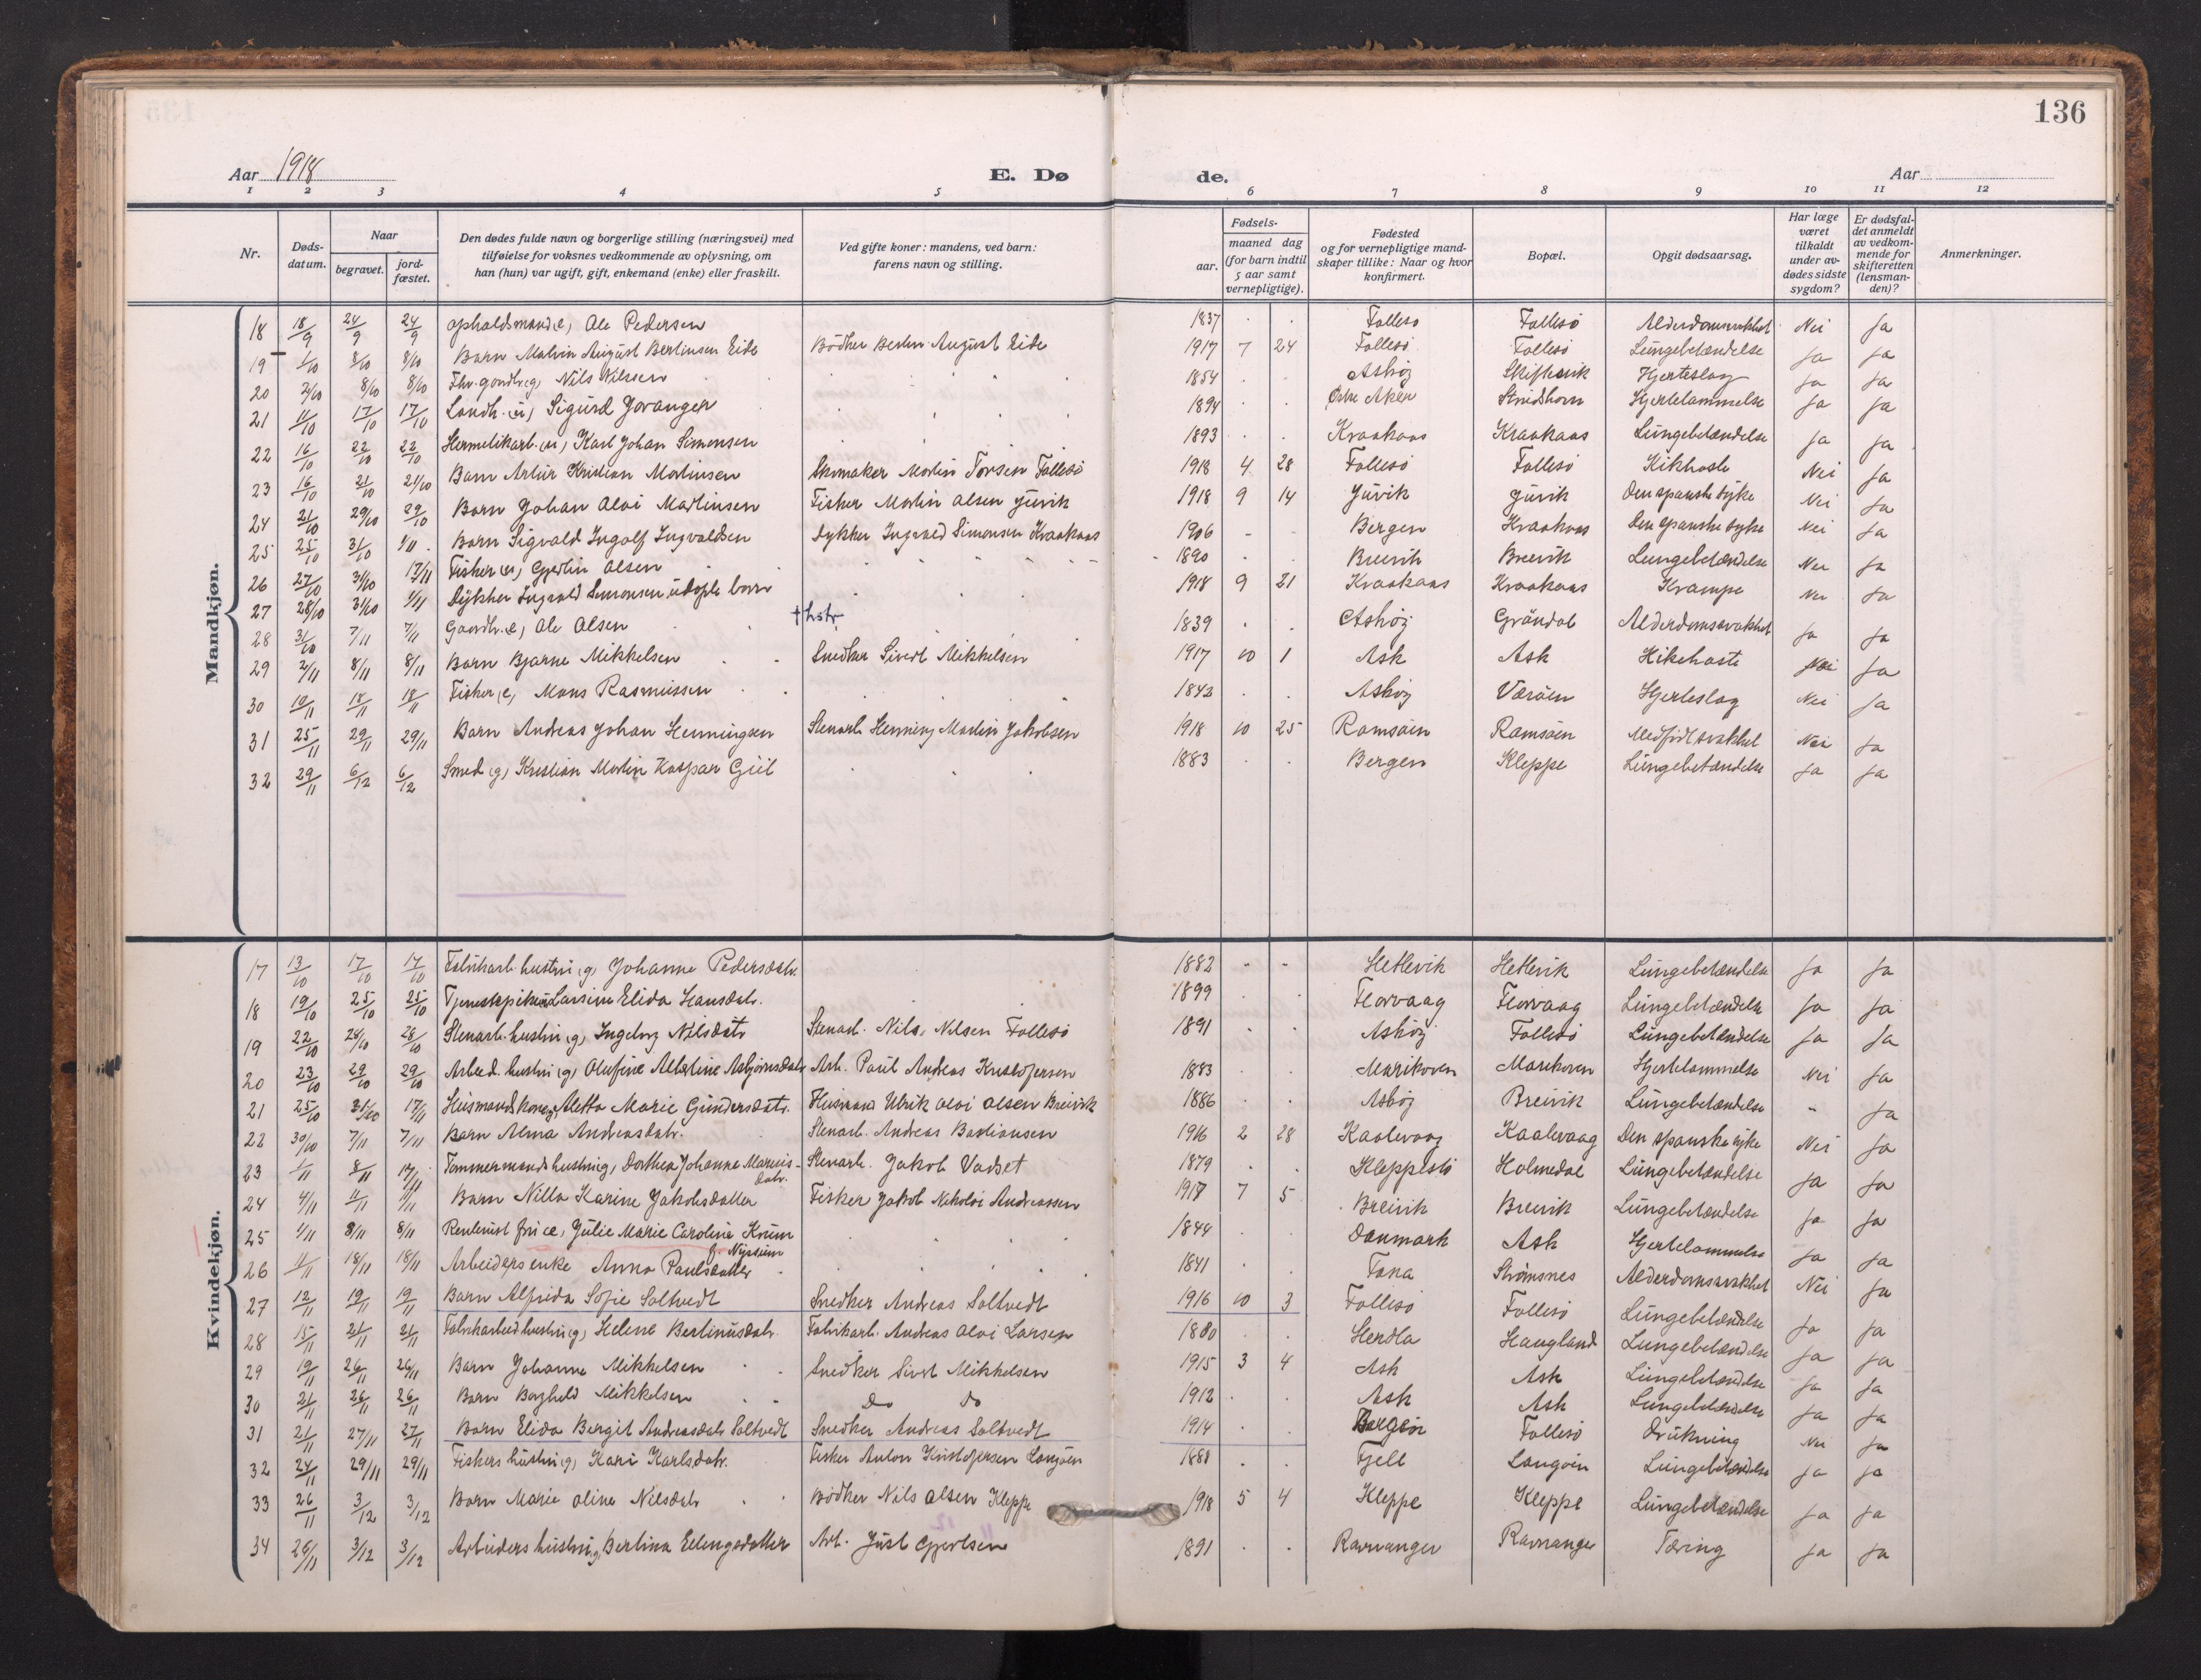 136
Aar 1918
E. Dø
de.
Aar
1 2 3 4 5 6 7 8 9 10 11 12
Nr.
Døds-datum.
Naar
begravet.
jord-fæstet.
Den dødes fulde navn og borgerlige stilling (næringsvei) med tilføielse for voksnes vedkommende av oplysning, om han (hun) var ugift, gift, enkemand (enke) eller fraskilt.
Ved gifte koner: mandens, ved barn: farens navn og stilling.
Fødsels-
aar.
maaned dag
(for barn indtil 5 aar samt vernepligtige).
Fødested og for vernepligtige mandskaper tillike: Naar og hvor konfirmert.
Bopæl.
Opgit dødsaarsag.
Har læge været tilkaldt under avdødes sidste sygdom?
Er dødsfaldet anmeldt av vedkommende for skifteretten (lensmanden)?
Anmerkninger.
Mandkjøn.
18 18/9 24/9 24/9 opholdsmand (e) Ole Pedersen 1837 Follesø Follesø Alderdomssvakhet Nei Ja
19 1/10 8/10 8/10 Barn Malvin August Bertinsen Eide Bödker Bertin August Eide 1917 7 24 Follesö Follesö Lungebetændelse Ja Ja
20 2/10 8/10 8/10 Fhv. gaardbr. (g) Nils Nilssen 1854 Askøy Skiftesvik Hjerteslag Ja Ja
21 11/10 17/10 17/10 Landh. (u) Sigurd Joranger 1894 Østre Aker Hjertelammelse Ja Ja
22 16/10 22/10 22/10 Hermetikarb. (u) Karl Johan Simonsen 1893 Kraakaas Kraakaas Lungebetændelse Ja Ja
23 16/10 21/10 21/10 Barn Artur Kristian Martinsen Skomaker Martin Torsen Follesö 1918 4 28 Follesö Follesö Kikhoste Nei Ja
24 21/10 29/10 29/10 Barn Johan Olai Martinsen Fisker Martin Olsen Juvik 1918 9 14 Juvik Juvik Den spanske syke Nei Ja
25 25/10 31/10 1/11 Barn Sigvald Ingolf Ingvaldsen Dykker Ingvald Simonsen Kraakaas 1906 - - Bergen Kraakaas Den spanske syke Nei Ja
26 27/10 31/10 17/11 Fisker (u) Gjertin Olsen 1890 Breivik Breivik Lungebetændelse Nei Ja
27 28/10 31/10 1/11 Dykker Ingvald Simonsen udøpte barn 1918 9 21 Kraakaas Kraakaas Krampe Nei Ja
28 31/10 7/11 7/11 Gaardbr. (e) Ole Olsen 1839 Askøy Gröndal Alderdomssvakhet Ja Ja
29 2/11 8/11 8/11 Barn Bjarne Mikkelsen Snedker Sivert Mikkelsen 1917 10 1 Ask Ask Kikehoste Nei Ja
30 10/11 18/11 18/11 Fisker (e) Mons Rasmussen 1842 Askøy Værøen Hjerteslag Nei Ja
31 25/11 29/11 29/11 Barn Andreas Johan Henningsen Stenarb. Henning Martin Jakobsen 1918 10 25 Ramsöen Ramsöen Medfødt svakhet Nei Ja
32 29/11 6/12 6/12 Smed (g) Kristian Martin Kaspar Giil 1883 Bergen Kleppe Lungebetændelse Ja Ja
Kvindekjøn.
17 13/10 17/10 17/10 Fabrikarb. hustru (g) Johanne Pedersdatr. 1882 - - Hetlevik Hetlevik Lungebetændelse Ja Ja
18 19/10 25/10 25/10 Tjenestepike Larsine Elida Hansdatr. 1899 Florvaag Florvaag Lungebetændelse Ja Ja
19 22/10 28/10 28/10 Stenarb. hustru (g) Ingeborg Nilsdatr. Stenarb. Nils Nilsen Follesö 1891 Askøy Follesö Lungebetændelse Ja Ja
20 23/10 29/10 29/10 Arbeid. hustru (g) Olufine Albertine Asbjørnsdatr. Arb. Paul Andreas Kristofersen 1883 Marikoven Marikoven Hjertelammelse Nei Ja
21 25/10 31/10 17/11 Husmandskone (g) Aletta Marie Gundersdatr. Husmand Ulrik Olai Olsen Breivik 1886 Askøy Breivik Lungebetændelse - Ja
22 30/10 7/11 7/11 Barn Alma Andreasdatr. Stenarb. Andreas Bastiansen 1916 2 28 Kaalevaag Kaalevaag Den spanske syke Nei Ja
23 1/11 8/11 17/11 Tømmermands hustru (g) Dorthea Johanne Marius-datr. Stenarb. Jakob Vadset 1879 Kleppestö Holmedal Lungebetændelse Ja Ja
24 4/11 11/11 11/11 Barn Nilla Karine Jakobsdatter Fisker Jakob Nikolai Andreassen 1917 7 5 Breivik Breivik Lungebetændelse Ja Ja
25 4/11 8/11 8/11 Rentenist frue (e) Julie Marie Caroline Krum f. Nyssum 1844 Danmark Ask Hjertelammelse Ja Ja
26 11/11 18/11 18/11 Arbeiders enke Anna Paulsdatter 1841 Fana Strömsnes Alderdomssvakhet Nei Ja
27 12/11 19/11 19/11 Barn Alfrida Sofie Soltvedt Snedker Andreas Soltvedt 1916 10 3 Follesö Follesö Lungebetændelse Ja Ja
28 15/11 21/11 21/11 Fabrikarbeid. hustru (g) Helene Bertinusdatr. Fabrikarb. Andreas Olai Larsen 1880 Herdla Haugland Lungebetændelse Ja Ja
29 19/11 26/11 26/11 Barn Johanne Mikkelsen Snedker Sivert Mikkelsen 1915 3 4 Ask Ask Lungebetændelse Ja Ja
30 21/11 26/11 26/11 Barn Borghild Mikkelsen Do Do 1912 Ask Ask Lungebetændelse Ja Ja
31 21/11 27/11 27/11 Barn Elida Bergit Andreasdatr. Soltvedt Snedker Andreas Soltvedt 1914 Bergen Follesö Drukning Nei Ja
32 24/11 29/11 29/11 Fiskers hustru (g) Kari Karlsdatr. Fisker Anton Kristofersen Langöen 1888 Fjell Langöen Lungebetændelse Ja Ja
33 26/11 3/12 3/12 Barn Marie Oline Nilsdatr. Bödker Nils Olsen Kleppe 1918 5 4 Kleppe Kleppe Lungebetændelse Ja Ja
34 26/11 3/12 3/12 Arbeiders hustru (g) Bertina Ellingsdatter Arb. Just Gjertsen 1891 Ravnanger Ravnanger Tæring Ja Ja